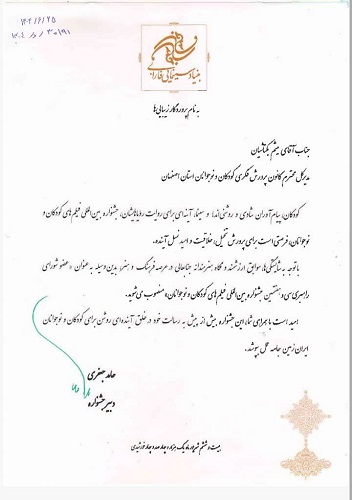 ۱۴۰۴/۶/۲۵
بنیاد سینمایی فارابی
به نام پروردگار زیبایی‌ها
جناب آقای میثم بکتاشیان
مدیرکل محترم کانون پرورش فکری کودکان و نوجوانان استان اصفهان
کودکان، پیام‌آوران شادی و روشنی‌اند؛ و سینما، آینه‌ای برای روایت رویاهایشان. جشنواره بین‌المللی فیلم‌های کودکان و
نوجوانان، فرصتی است برای پرورش تخیل، خلاقیت و امید نسل آینده.
با توجه به شایستگی‌ها، سوابق ارزشمند و نگاه هنرمندانه جنابعالی در عرصه فرهنگ و هنر، بدین وسیله به عنوان «عضو شورای
راهبری سی و هفتمین جشنواره بین‌المللی فیلم‌های کودکان و نوجوانان» منصوب می‌شوید.
امید است با همراهی شما، این جشنواره بیش از پیش به رسالت خود در خلق آینده‌ای روشن برای کودکان و نوجوانان
ایران زمین جامه عمل بپوشد.
حامد جعفری
دبیر جشنواره
بیست و ششم شهریور ماه یک هزار و چهارصد و چهار خورشیدی